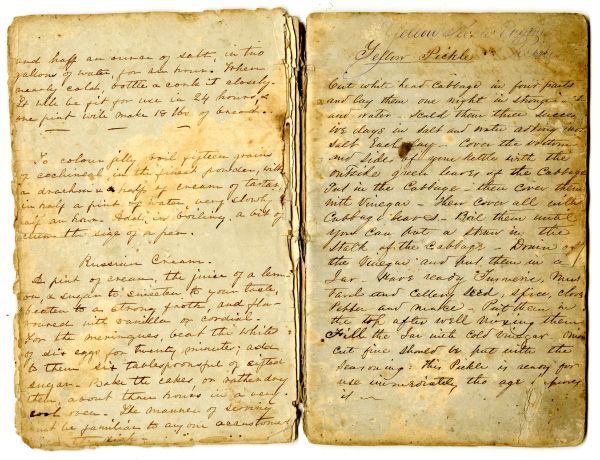 and half an ounce of salt, in two
gallons of water, for an hour. When
nearly cold, bottle & cork it closely.
It will be fit for use in 24 hours, &
one pint will make 18 lbs of bread.
To colour jelly, boil fifteen grains
of cochineal, in the finest powder, with
a drachm & a half of cream of tartar,
in half a pint of water, very slowly,
half an hour. Add, in boiling, a bit of
alum the size of a pea.
Russian Cream.
A pint of cream, the juice of a lem-
on, & sugar to sweeten to your taste,
beaten to a strong froth, and fla-
voured with vanilla or cordial.
For the meringues, beat the whites
of six eggs for twenty minutes, add
to them six tablespoonsful of sifted
sugar. Bake the cakes, or rather dry
them, about three hours in a very
cool oven. The manner of serving
must be familiar to any one accustomed
Yellow Pickle
Yellow Pickle
Cut white head Cabbage in four parts
and lay them one night in strong
and water Scald them three succes
ive days in salt and water adding
salt Each day. Cover the bottom
and Side of your kettle with the
outside green leaves of the Cabbage
Put in the Cabbage - then cover them
with Vinegar. Then cover all with
Cabbage leaves - Boil them until
you Can put a straw in the
stalk of the Cabbage - Drain off
the Vinegar and put them in a
Jar. Have ready Turmeric, Mus
tard and Cellery Seed, Spice, Cloves
Pepper and Mace - Put them in
the top after well mixing them
Fill the Jar with Cold Vinegar.
Cut fine should be put with the
Seasoning. this Pickle is ready for
use immediately tho age
it ~